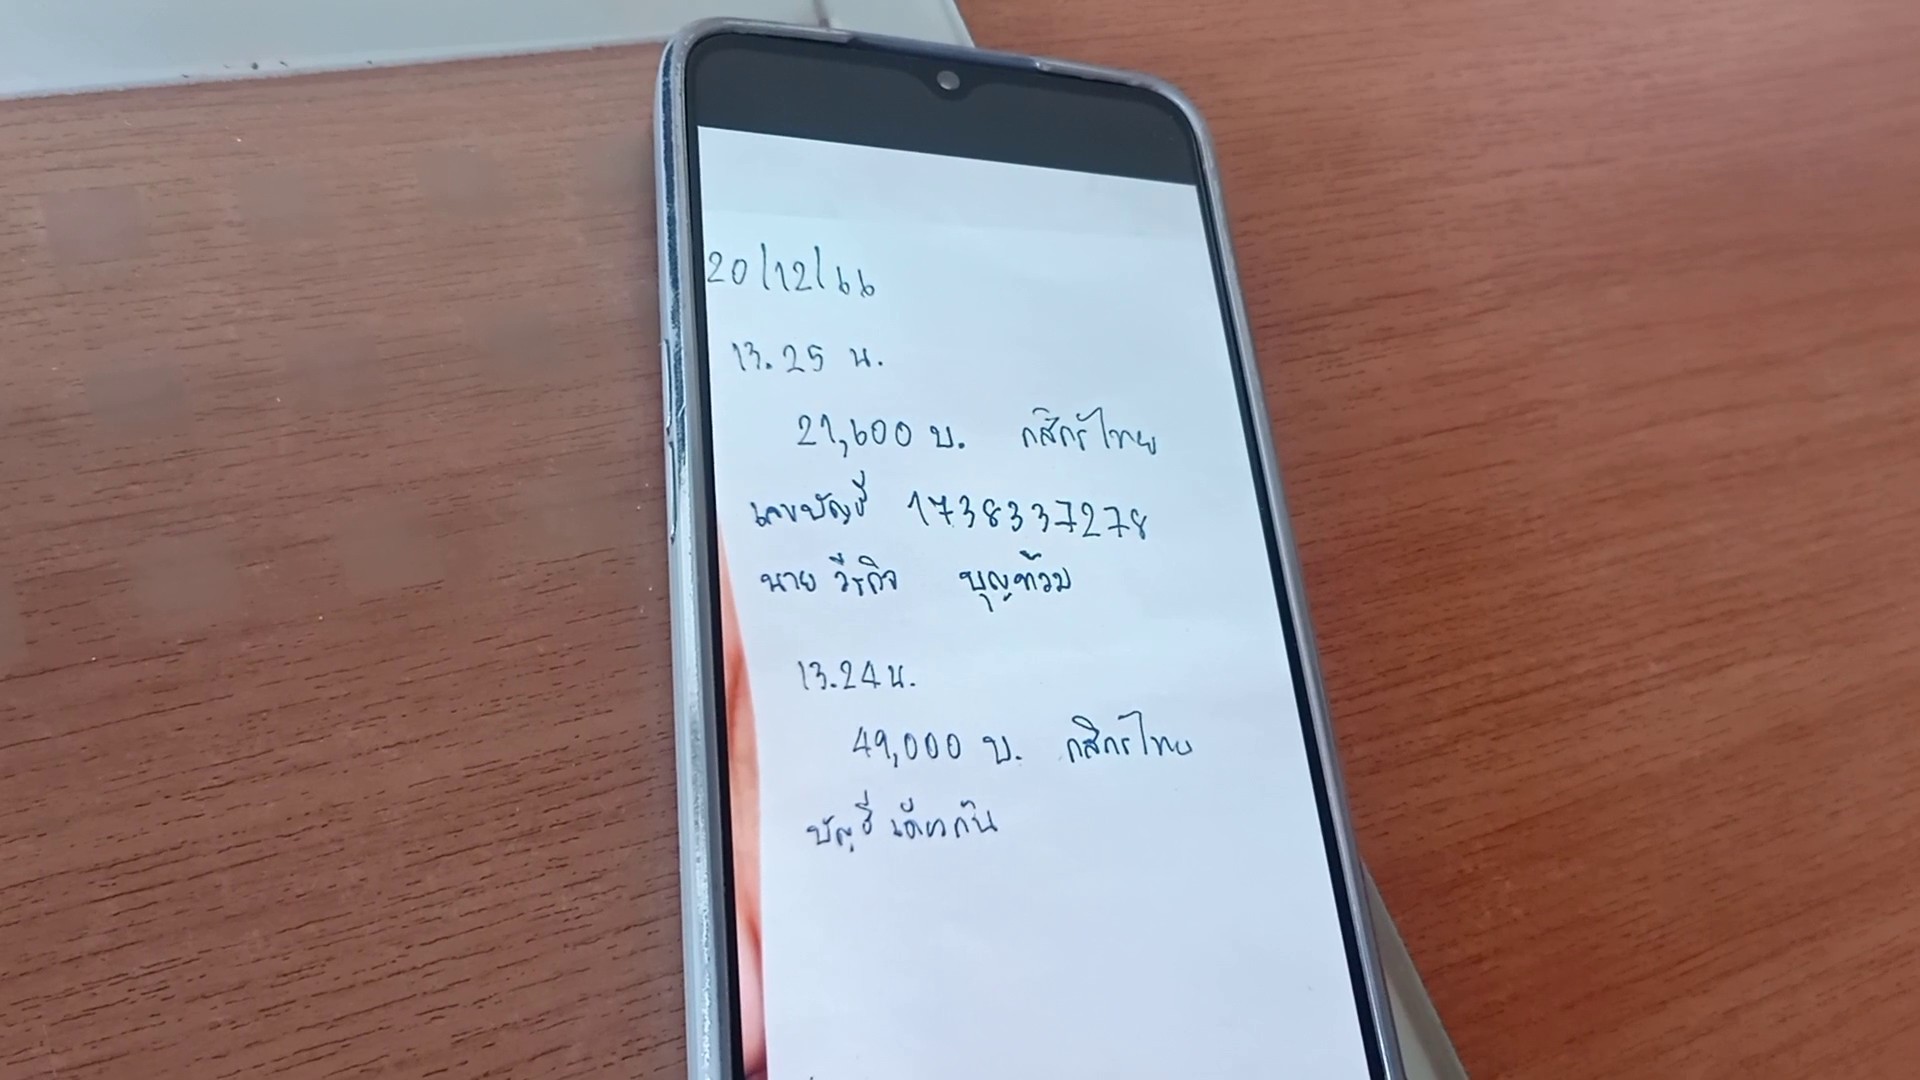 20/12/66
13.25 น.
21,600 บ. กสิกรไทย
เลขบัญชี 1738337278
นาย วีรกิจ บุญท้วม
13.24 น.
49,000 บ. กสิกรไทย
บัญชีเดียวกัน